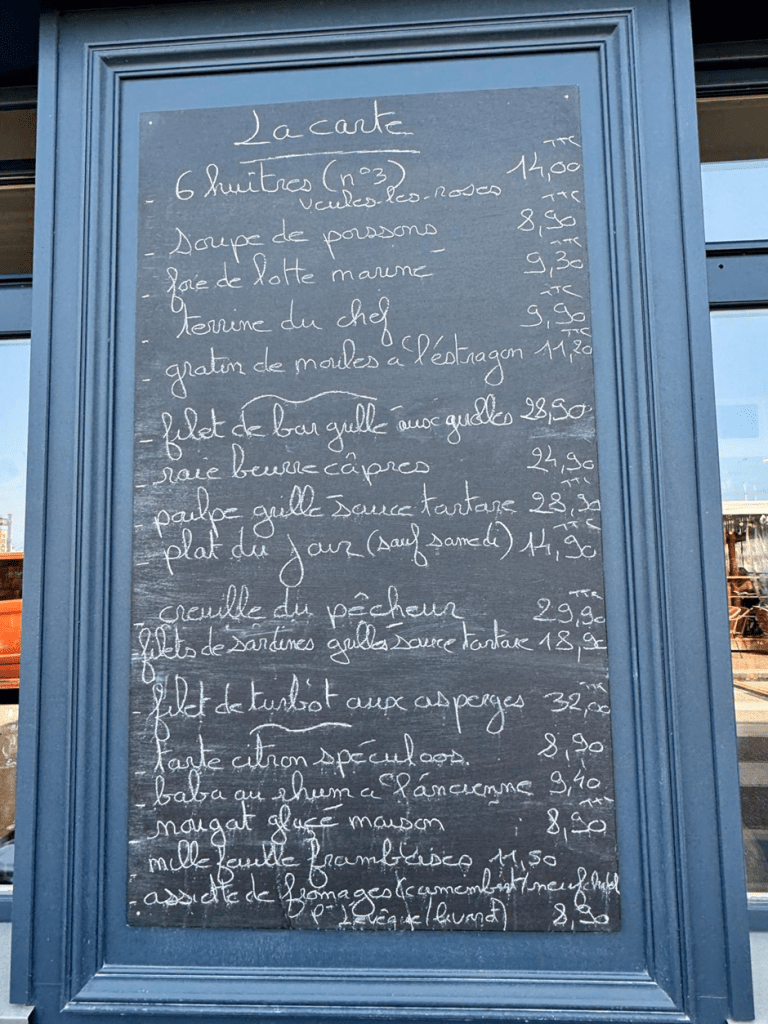 La carte
TTC
- 6 huîtres (n°3) 14,00
veules-les-roses TTC
- soupe de poissons 8,90
TTC
- foie de lotte mariné 9,30
TTC
- terrine du chef 9,90
TTC
- gratin de moules à l'éstragon 11,20
- filet de bar grillé aux girolles 28,90
- raie beurre câpres 24,90
TTC
- poulpe grillé sauce tartare 28,90
TTC
- plat du jour (sauf samedi) 14,90
TTC
- creuille du pêcheur 29,90
- filets de sardines grillés sauce tartare 18,90
TTC
- filet de turbot aux asperges 32,00
- tarte citron spéculoos. 8,90
- baba au rhum à l'áncienne 9,40
TTC
- nougat glaçé maison 8,90
- mille feuille framboises 11,50
- assiette de fromages (camembert/neufchatel
Pt L'évêque/livarot) 8,90